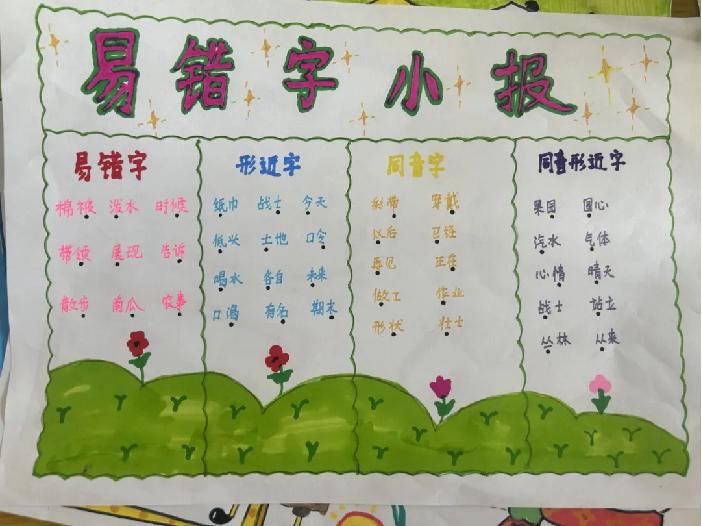 易错字小报
易错字
棉被 泼水 时候
带领 展现 告诉
散步 南瓜 故事
形近字
纸巾 战士 今天
低头 土地 口令
喝水 各自 未来
口渴 有名 期末
同音字
彩带 穿戴
以后 已经
再见 正在
做工 作业
形状 壮士
同音形近字
果园 圆心
汽水 气体
心情 晴天
战士 站立
丛林 从来